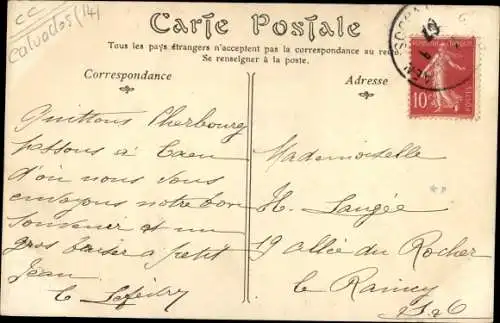 CC
Calvados (14)
Carte Postale
Tous les pays étrangers n'acceptent pas la correspondance au re
Se renseigner à la poste.
Correspondance
Adresse
10c
POSTES
Quittons Cherbourg
passons à Caen
d'où nous vous
envoyons notre bon
souvenir et un
gros baiser a petit
Jean
Mademoiselle
H. Laugée
19 allée du Rocher
le Raincy
S. & O